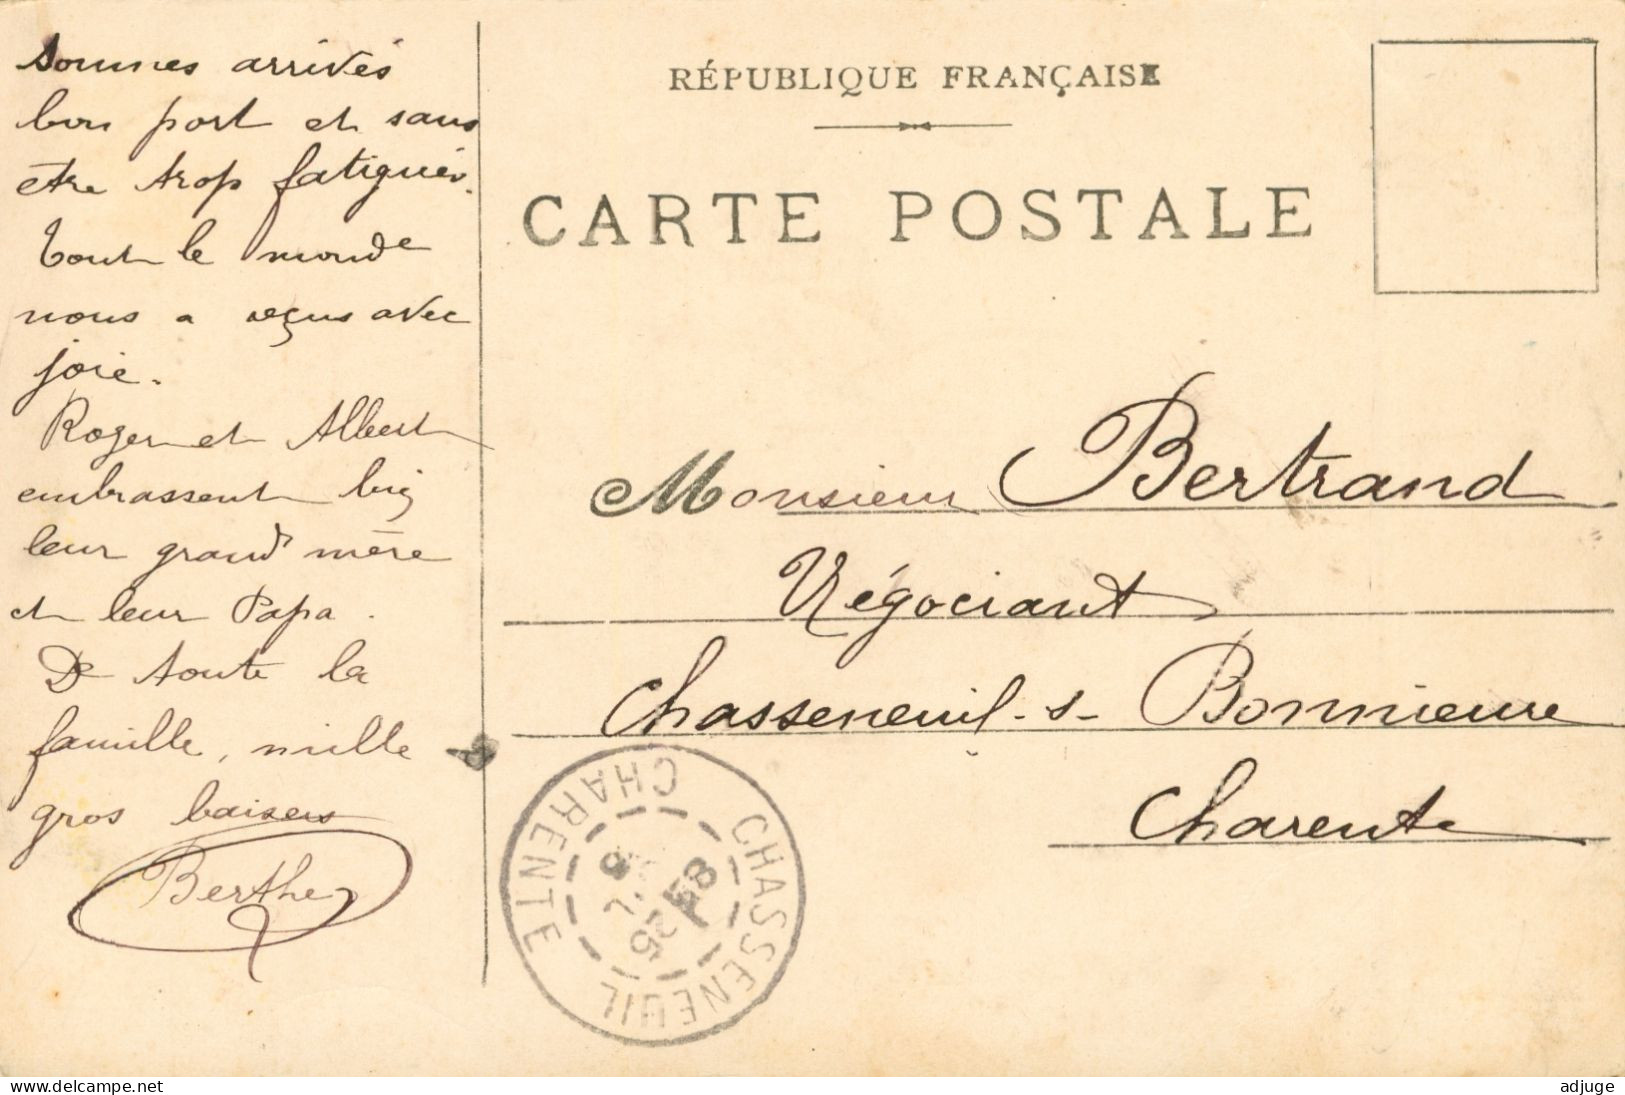 Sommes arrivés
bon port et sans
être trop fatigués.
Tout le monde
nous a reçus avec
joie.
Roger et Albert
embrassent big
leur grand mère
et leur Papa.
De toute la
famille, mille
gros baisers
Berthe
RÉPUBLIQUE FRANÇAISE
CARTE POSTALE
Monsieur Bertrand
Négociant
Chasseneuil-s-Bonnieure
Charente
CHASSENEUIL
CHARENTE
adjuge